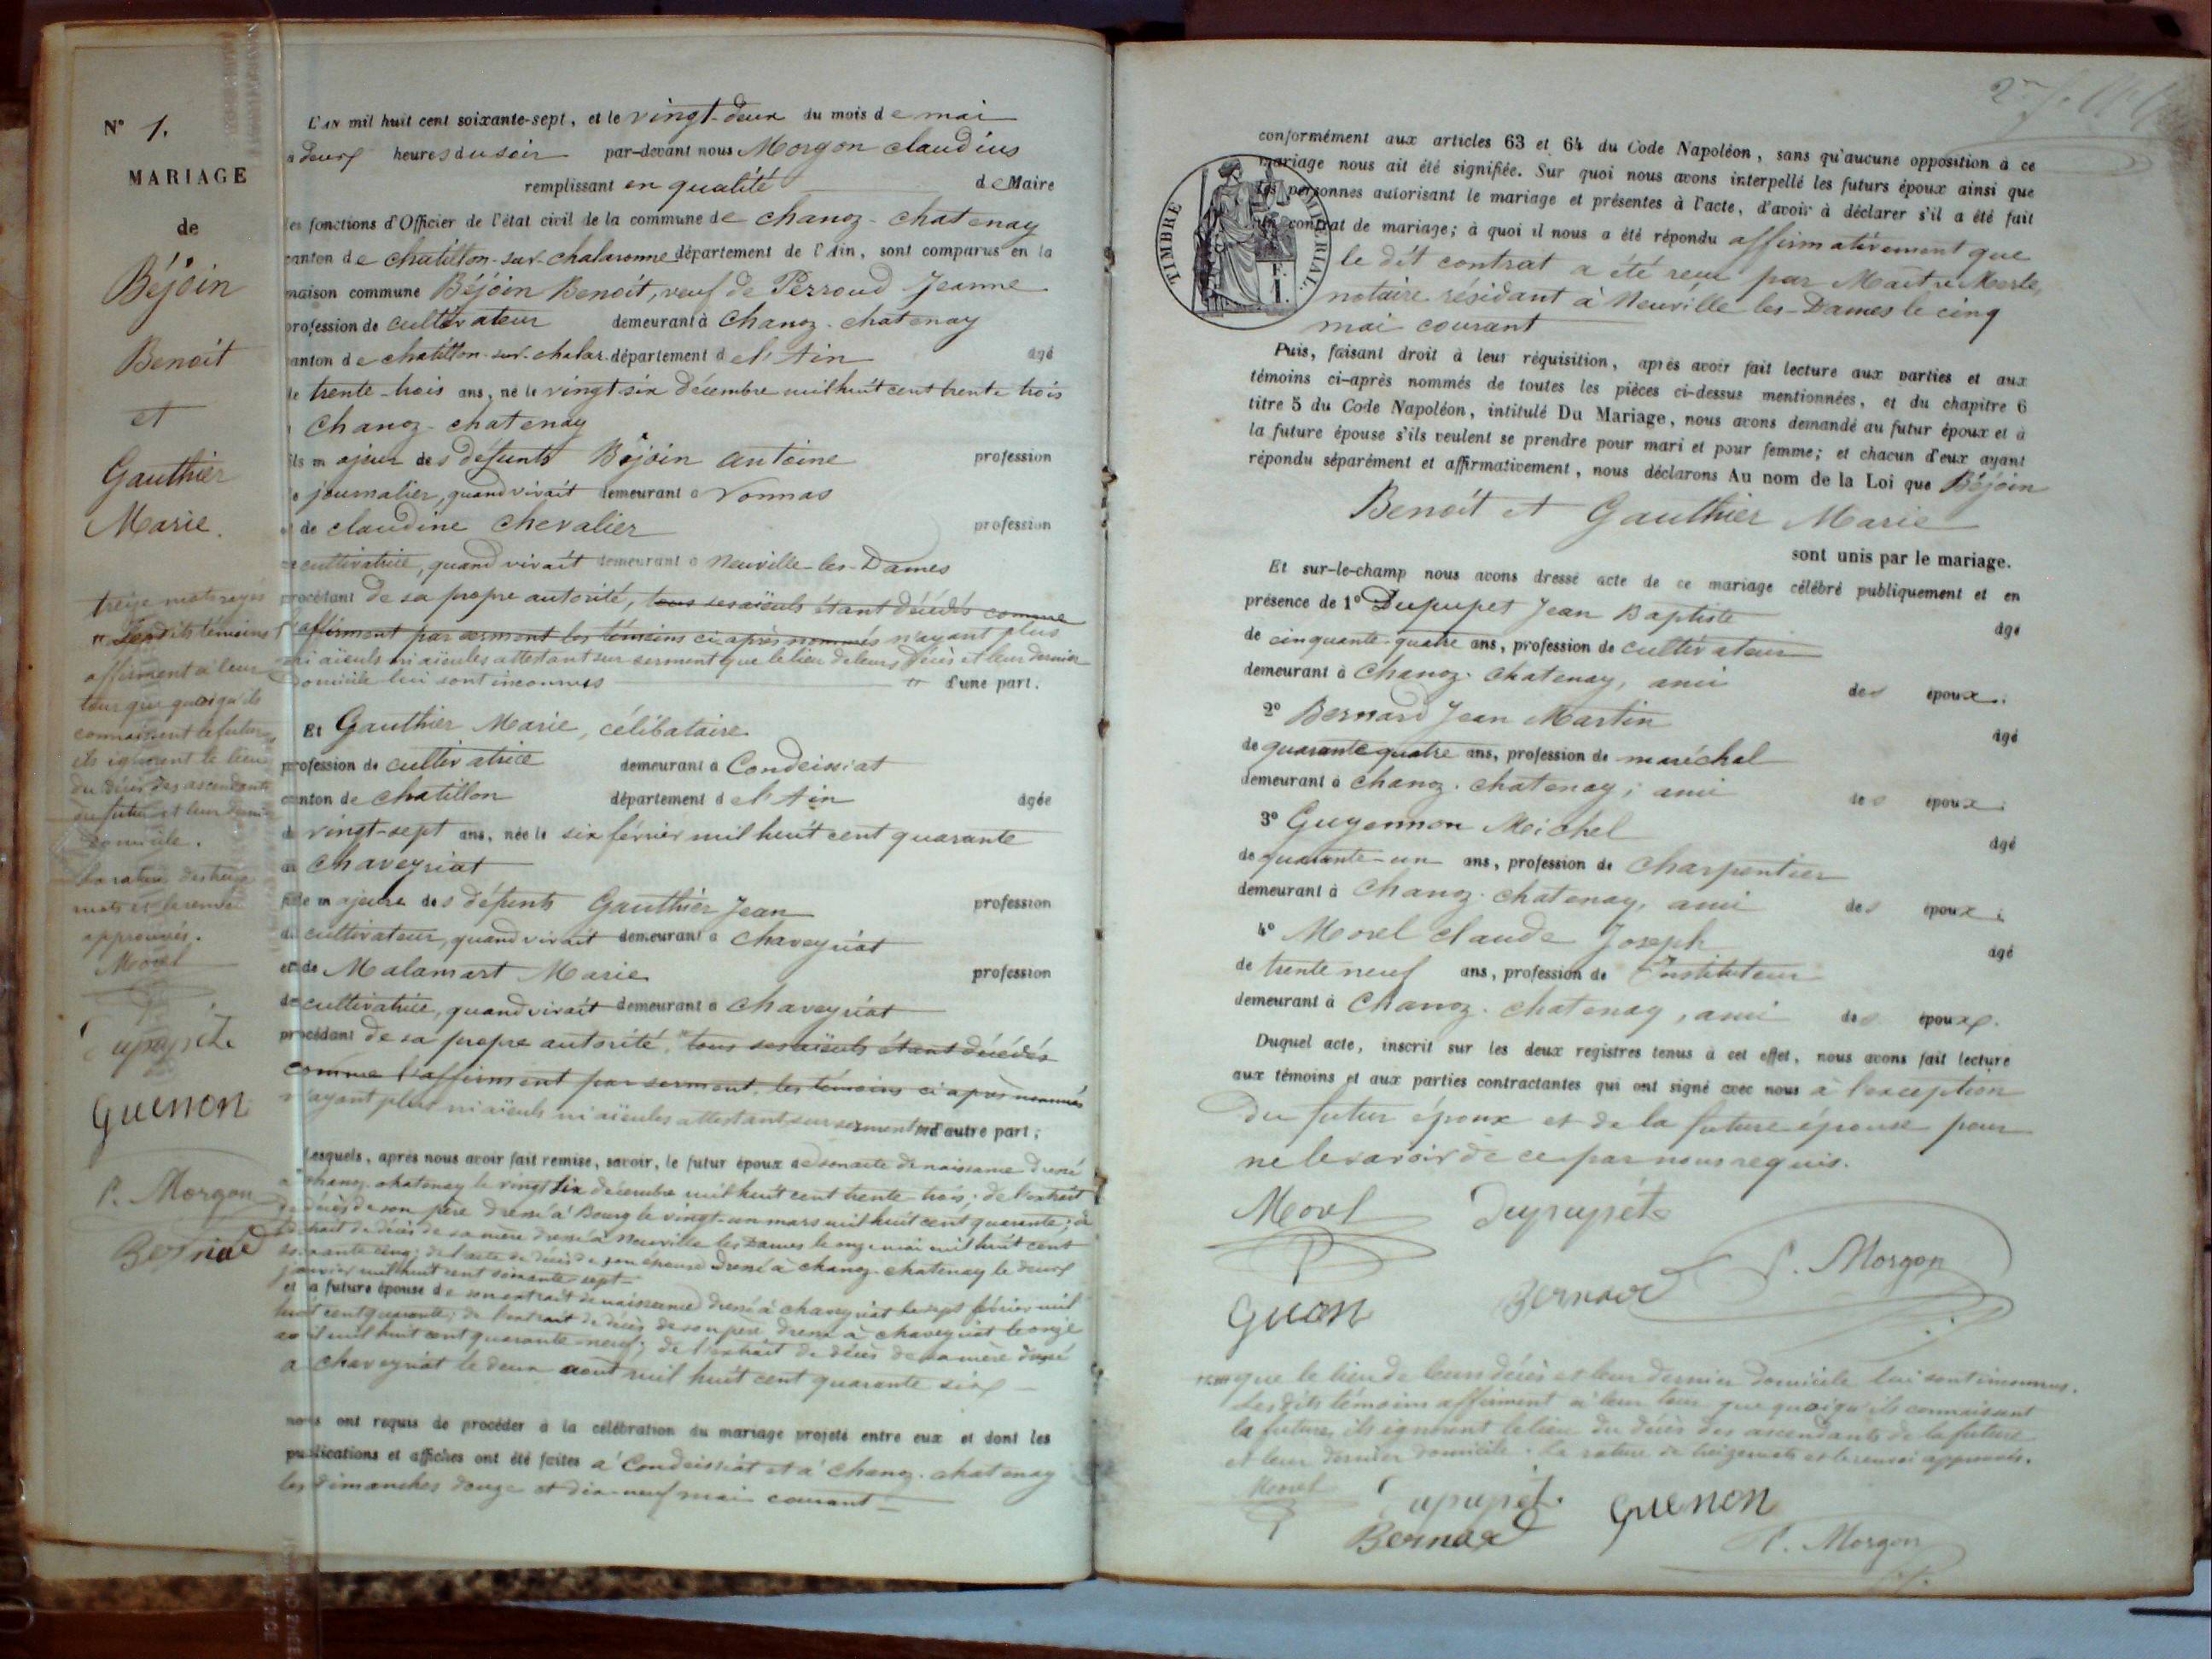 N° 1.
MARIAGE
de
Béjoin
Benoit
et
Gauthier
Marie.
treize mots rayés
Lesdits témoins
affirment à leur
tour que quoiqu'ils
connaissent le futur
ils ignorent le lieu
du décès des ascendants
du futur et leur dernier
domicile.
La rature des treize
mots et le renvoi
approuvés.
Morel
Dupupét
Guenon
C. Morgon
Bernard
L'AN mil huit cent soixante-sept, et le vingt-deux du mois de mai
à deux heures du soir par-devant nous Morgon claudius
remplissant en qualité de Maire
les fonctions d'Officier de l'état civil de la commune de chanoz-chatenay
canton de chatillon-sur-chalaronne département de l'Ain, sont comparus en la
maison commune Béjoin Benoit, veuf de Perroud Jeanne
profession de cultivateur demeurant à Chanoz-chatenay
canton de chatillon-sur-chalar. département de l'Ain âgé
de trente-trois ans, né le vingt six décembre mil huit cent trente trois
à Chanoz-chatenay
fils majeur des défunts Béjoin antoine profession
de journalier, quand vivait demeurant à Vonnas
et de claudine chevalier profession
de cultivatrice, quand vivait demeurant à Neuville-les-Dames
procédant de sa propre autorité, tous ses aïeuls étant décédés comme
l'affirment par serment les témoins ci-après nommés n'ayant plus
ni aïeuls ni aïeules attestant sur serment que le lieu de leurs décès et leur dernier
domicile lui sont inconnus " d'une part.
Et Gauthier Marie, célibataire
profession de cultivatrice demeurant à Condeissiat
canton de chatillon département de l'Ain âgée
de vingt-sept ans, née le six février mil huit cent quarante
à Chaveyriat
fille majeure des défunts Gauthier Jean profession
de cultivateur, quand vivait demeurant à chaveyriat
et de Malamart Marie profession
de cultivatrice, quand vivait demeurant à chaveyriat
procédant de sa propre autorité, tous ses aïeuls étant décédés
comme l'affirment par serment les témoins ci après nommés
n'ayant plus ni aïeuls ni aïeules attestant sur serment d'autre part;
Lesquels, après nous avoir fait remise, savoir, le futur époux de son acte de naissance dressé
à chanoz-chatenay le vingt six décembre mil huit cent trente-trois; de l'extrait
de décès de son père dressé à Bourg le vingt-un mars mil huit cent quarante; de
l'extrait de décès de sa mère dressé à Neuville les Dames le onze mai mil huit cent
soixante cinq; de l'acte de décès de son épouse dressé à chanoz-chatenay le deux
janvier mil huit cent soixante sept
et la future épouse de son extrait de naissance dressé à chaveyriat le sept février mil
huit cent quarante; de l'extrait de décès de son père dressé à chaveyriat le onze
avril mil huit cent quarante neuf; de l'extrait de décès de sa mère dressé
à chaveyriat le deux août mil huit cent quarante six
nous ont requis de procéder à la célébration du mariage projeté entre eux et dont les
publications et affiches ont été faites à Condeissiat et à chanoz-chatenay
les dimanches douze et dix-neuf mai courant
conformément aux articles 63 et 64 du Code Napoléon, sans qu'aucune opposition à ce
mariage nous ait été signifiée. Sur quoi nous avons interpellé les futurs époux ainsi que
les personnes autorisant le mariage et présentes à l'acte, d'avoir à déclarer s'il a été fait
un contrat de mariage; à quoi il nous a été répondu affirmativement que
le dit contrat a été reçu par Maître Merle,
notaire résidant à Neuville les-Dames le cinq
mai courant
TIMBRE IMPÉRIAL.
Puis, faisant droit à leur réquisition, après avoir fait lecture aux parties et aux
témoins ci-après nommés de toutes les pièces ci-dessus mentionnées, et du chapitre 6
titre 5 du Code Napoléon, intitulé Du Mariage, nous avons demandé au futur époux et à
la future épouse s'ils veulent se prendre pour mari et pour femme; et chacun d'eux ayant
répondu séparément et affirmativement, nous déclarons Au nom de la Loi que Béjoin
Benoit et Gauthier Marie
sont unis par le mariage.
Et sur-le-champ nous avons dressé acte de ce mariage célébré publiquement et en
présence de 1° Dupupet Jean Baptiste âgé
de cinquante-quatre ans, profession de cultivateur
demeurant à Chanoz-chatenay, ami des époux.
2° Bernard Jean Martin âgé
de quarante quatre ans, profession de maréchal
demeurant à chanoz-chatenay; ami des époux;
3° Guyennon Michel âgé
de quarante-un ans, profession de charpentier
demeurant à Chanoz-chatenay, ami des époux;
4° Morel claude Joseph âgé
de trente neuf ans, profession de Instituteur
demeurant à Chanoz-chatenay, ami des époux.
Duquel acte, inscrit sur les deux registres tenus à cet effet, nous avons fait lecture
aux témoins et aux parties contractantes qui ont signé avec nous à l'exception
du futur époux et de la future épouse pour
ne le savoir de ce par nous requis.
Morel Dupupét
C. Morgon
Guenon Bernard
que le lieu de leurs décès et leur dernier domicile lui sont inconnus.
Les dits témoins affirment à leur tour que quoiqu'ils connaissent
la future, ils ignorent le lieu du décès des ascendants de la future
et leur dernier domicile. La rature de treize mots et le renvoi approuvés.
Morel Dupupét. Guenon
Bernard C. Morgon